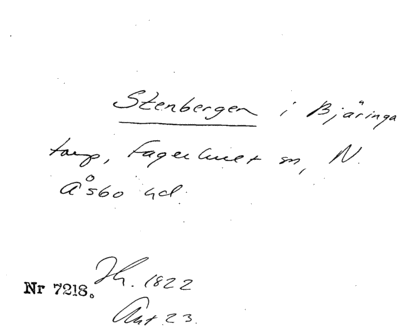 Stenbergen i Bjäringa
torp, Fagerhult sn, N.
Åsbo hd.
Nr 7218.
Jh. 1822
Ant. 23.